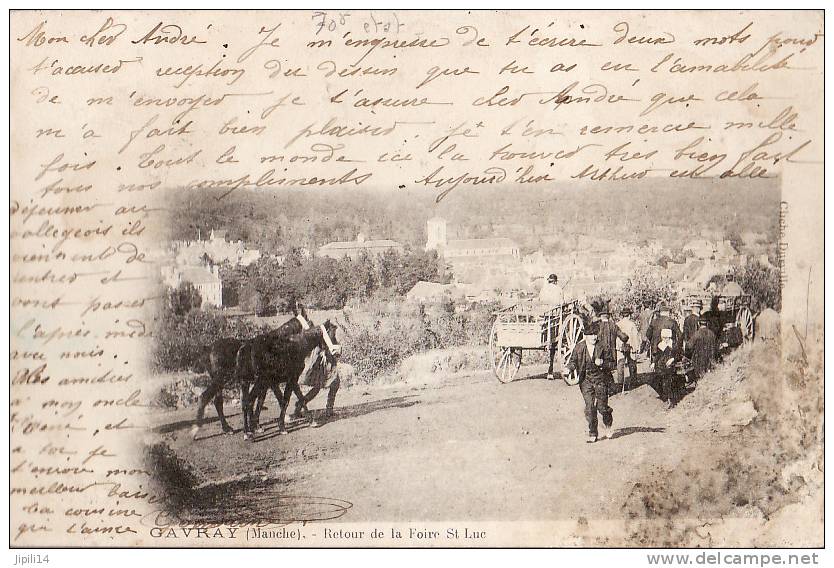 Mon cher André. Je m'empresse de t'écrire deux mots pour
t'accuser réception du dessin que tu as eu l'amabilité
de m'envoyer Je t'assure cher André que cela
m'a fait bien plaisir. Je t'en remercie mille
fois. Tout le monde ici l'a trouvé très bien fait
tous nos compliments. Aujourd'hui Arthur est allé
déjeuner au
collège où ils
viennent de
rentrer et
vont passer
l'après midi
avec nous.
Mes amitiés
à mon oncle
et
à toi je
t'envoie mon
meilleur baiser
ta cousine
qui t'aime
GAVRAY (Manche). - Retour de la Foire St Luc
Cliché
jipili14
www.delcampe.net